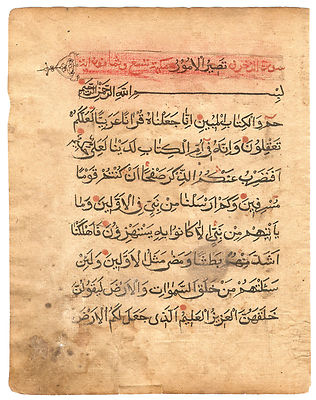 سورة الزخرف تصير الامور مكية تسع وثمانون اية
بسم الله الرحمن الرحيم
حم والكتاب المبين انا جعلناه قرانا عربيا لعلكم
تعقلون وانه في ام الكتاب لدينا لعلي حكيم
افنضرب عنكم الذكر صفحا ان كنتم قوما
مسرفين وكم ارسلنا من نبي في الاولين وما
ياتيهم من نبي الا كانوا به يستهزؤن فاهلكنا
اشد منهم بطشا ومضى مثل الاولين ولئن
سئلتهم من خلق السموات والارض ليقولن
خلقهن العزيز العليم الذي جعل لكم الارض